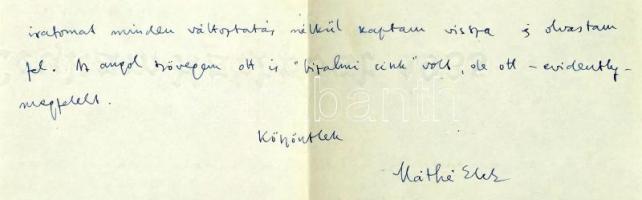 iratomat minden változtatás nélkül kaptam vissza és olvastam
fel. Az angol szövegem ott is "bizalmi cikk" volt, de ott – evidently –
megfelelt.
Köszöntlek
Máthé Elek